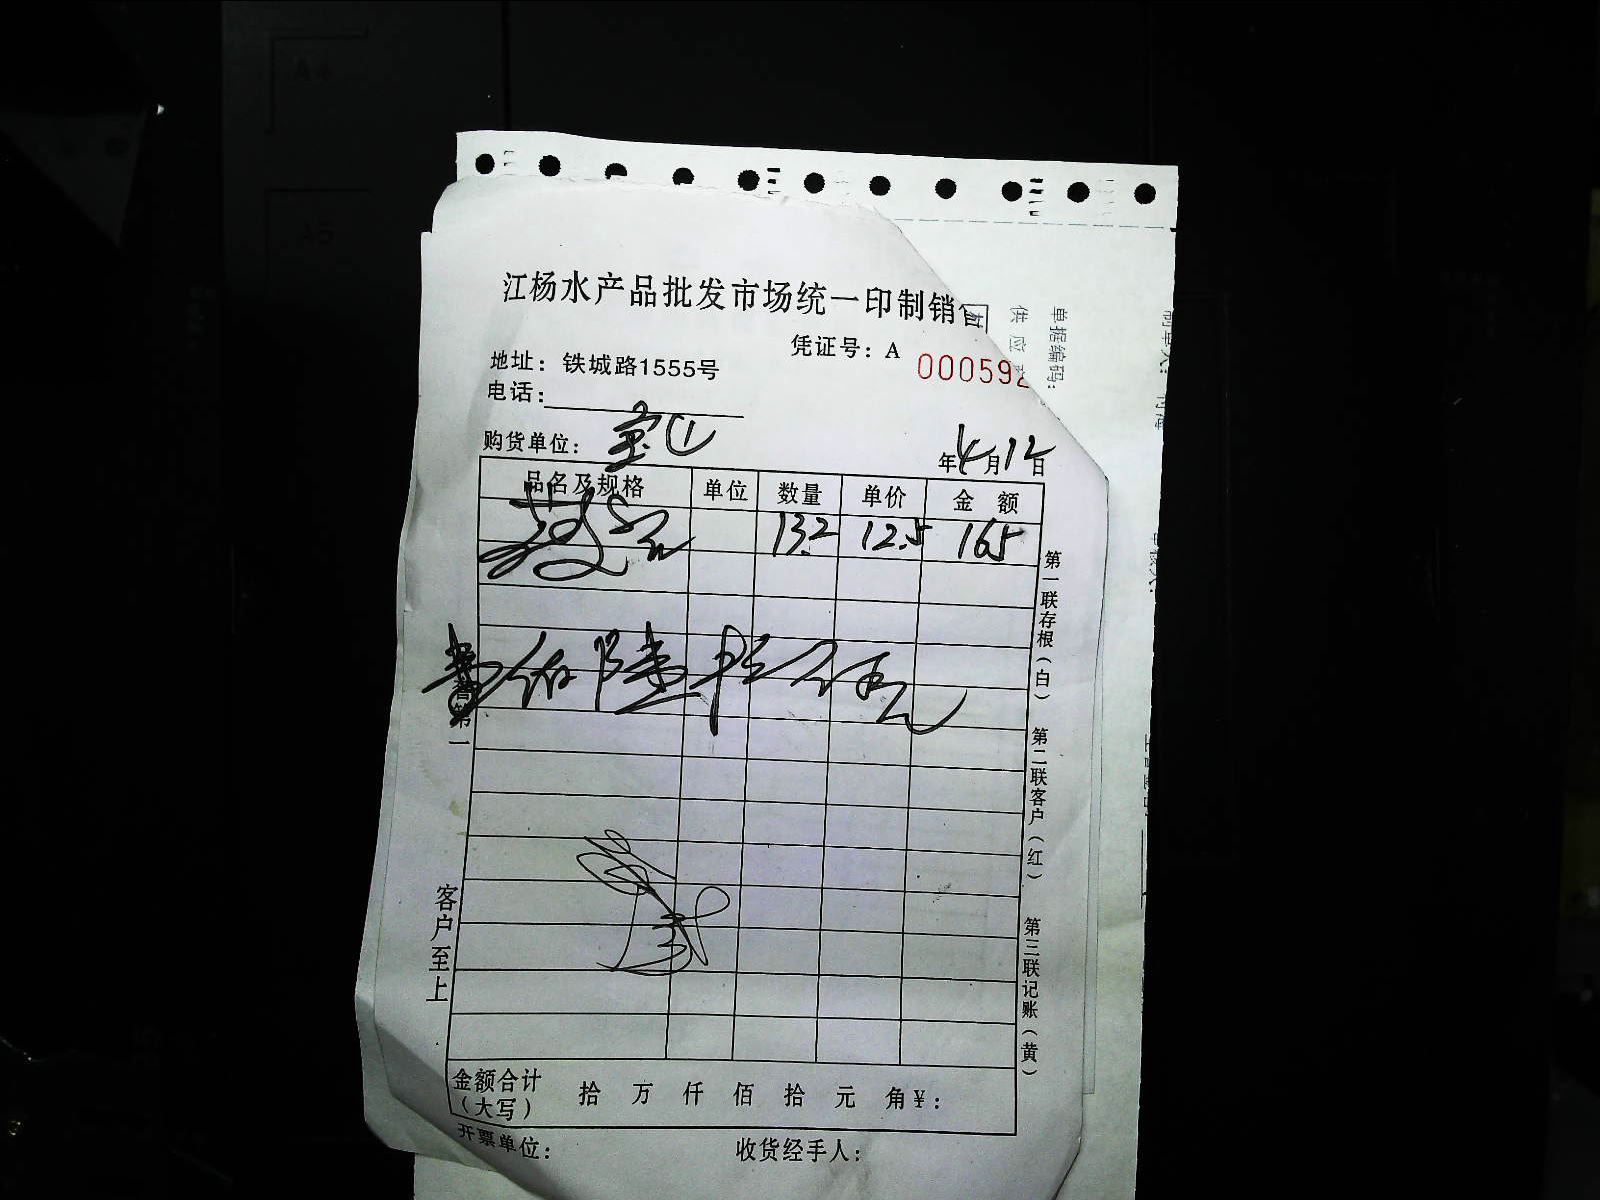 江杨水产品批发市场统一印制销
凭证号：A 000592
地址：铁城路1555号
电话：
购货单位：宝①
年4月12日
品名及规格 单位 数量 单价 金额
13.2 12.5 165
壹佰陆拾伍元
第一
客户至上
第一联存根（白）
第二联客户（红）
第三联记账（黄）
金额合计（大写） 拾 万 仟 佰 拾 元 角¥：
开票单位： 收货经手人：
单据编码：
供应